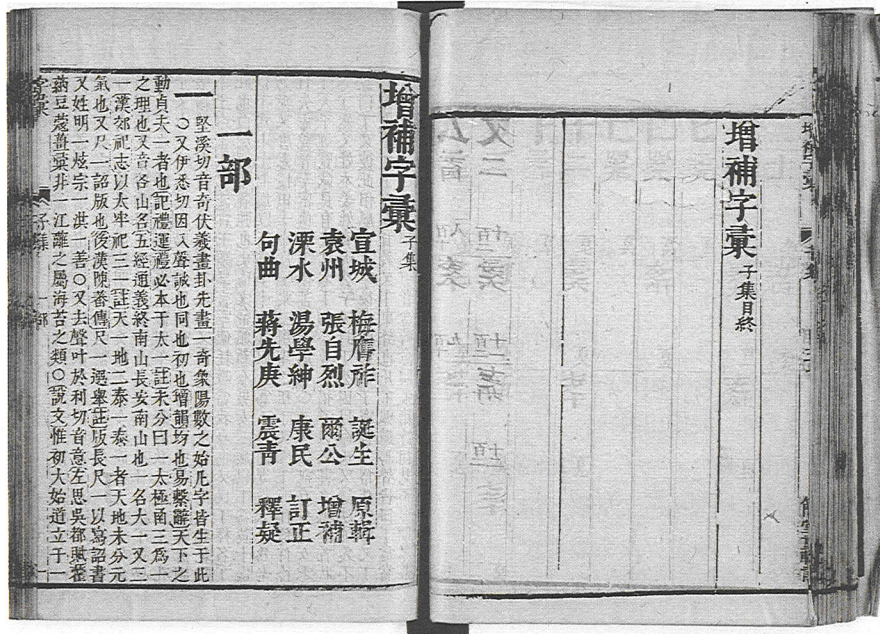 增補字彙 子集目終
增補字彙 子集
宣城 梅膺祚 誕生 原輯
袁州 張自烈 爾公 增補
溧水 湯學紳 康民 訂正
句曲 蔣先庚 震青 釋疑
一部
一 堅溪切音奇伏羲畫卦先畫一奇象陽數之始凡字皆生于此
○又伊悉切因入聲誠也同也初也增韻均也易繫辭天下之
動貞夫一者也記禮運禮必本于太一註未分曰一太極函三爲一
之理也又音各山名五經通義終南山長安南山也一名大一又三
一漢郊祀志以太牢祀三一註天一地二泰一泰一者天地未分元
氣也又尺一詔版也後漢陳蕃傳尺一選舉註版長尺一以寫詔書
又姓明一炫宗一淇一善○又去聲叶於利切音意左思吳都賦藿
蒳豆蔻薑彙非一江蘺之屬海苔之類○說文惟初大始道立于一
字彙 子集 一部